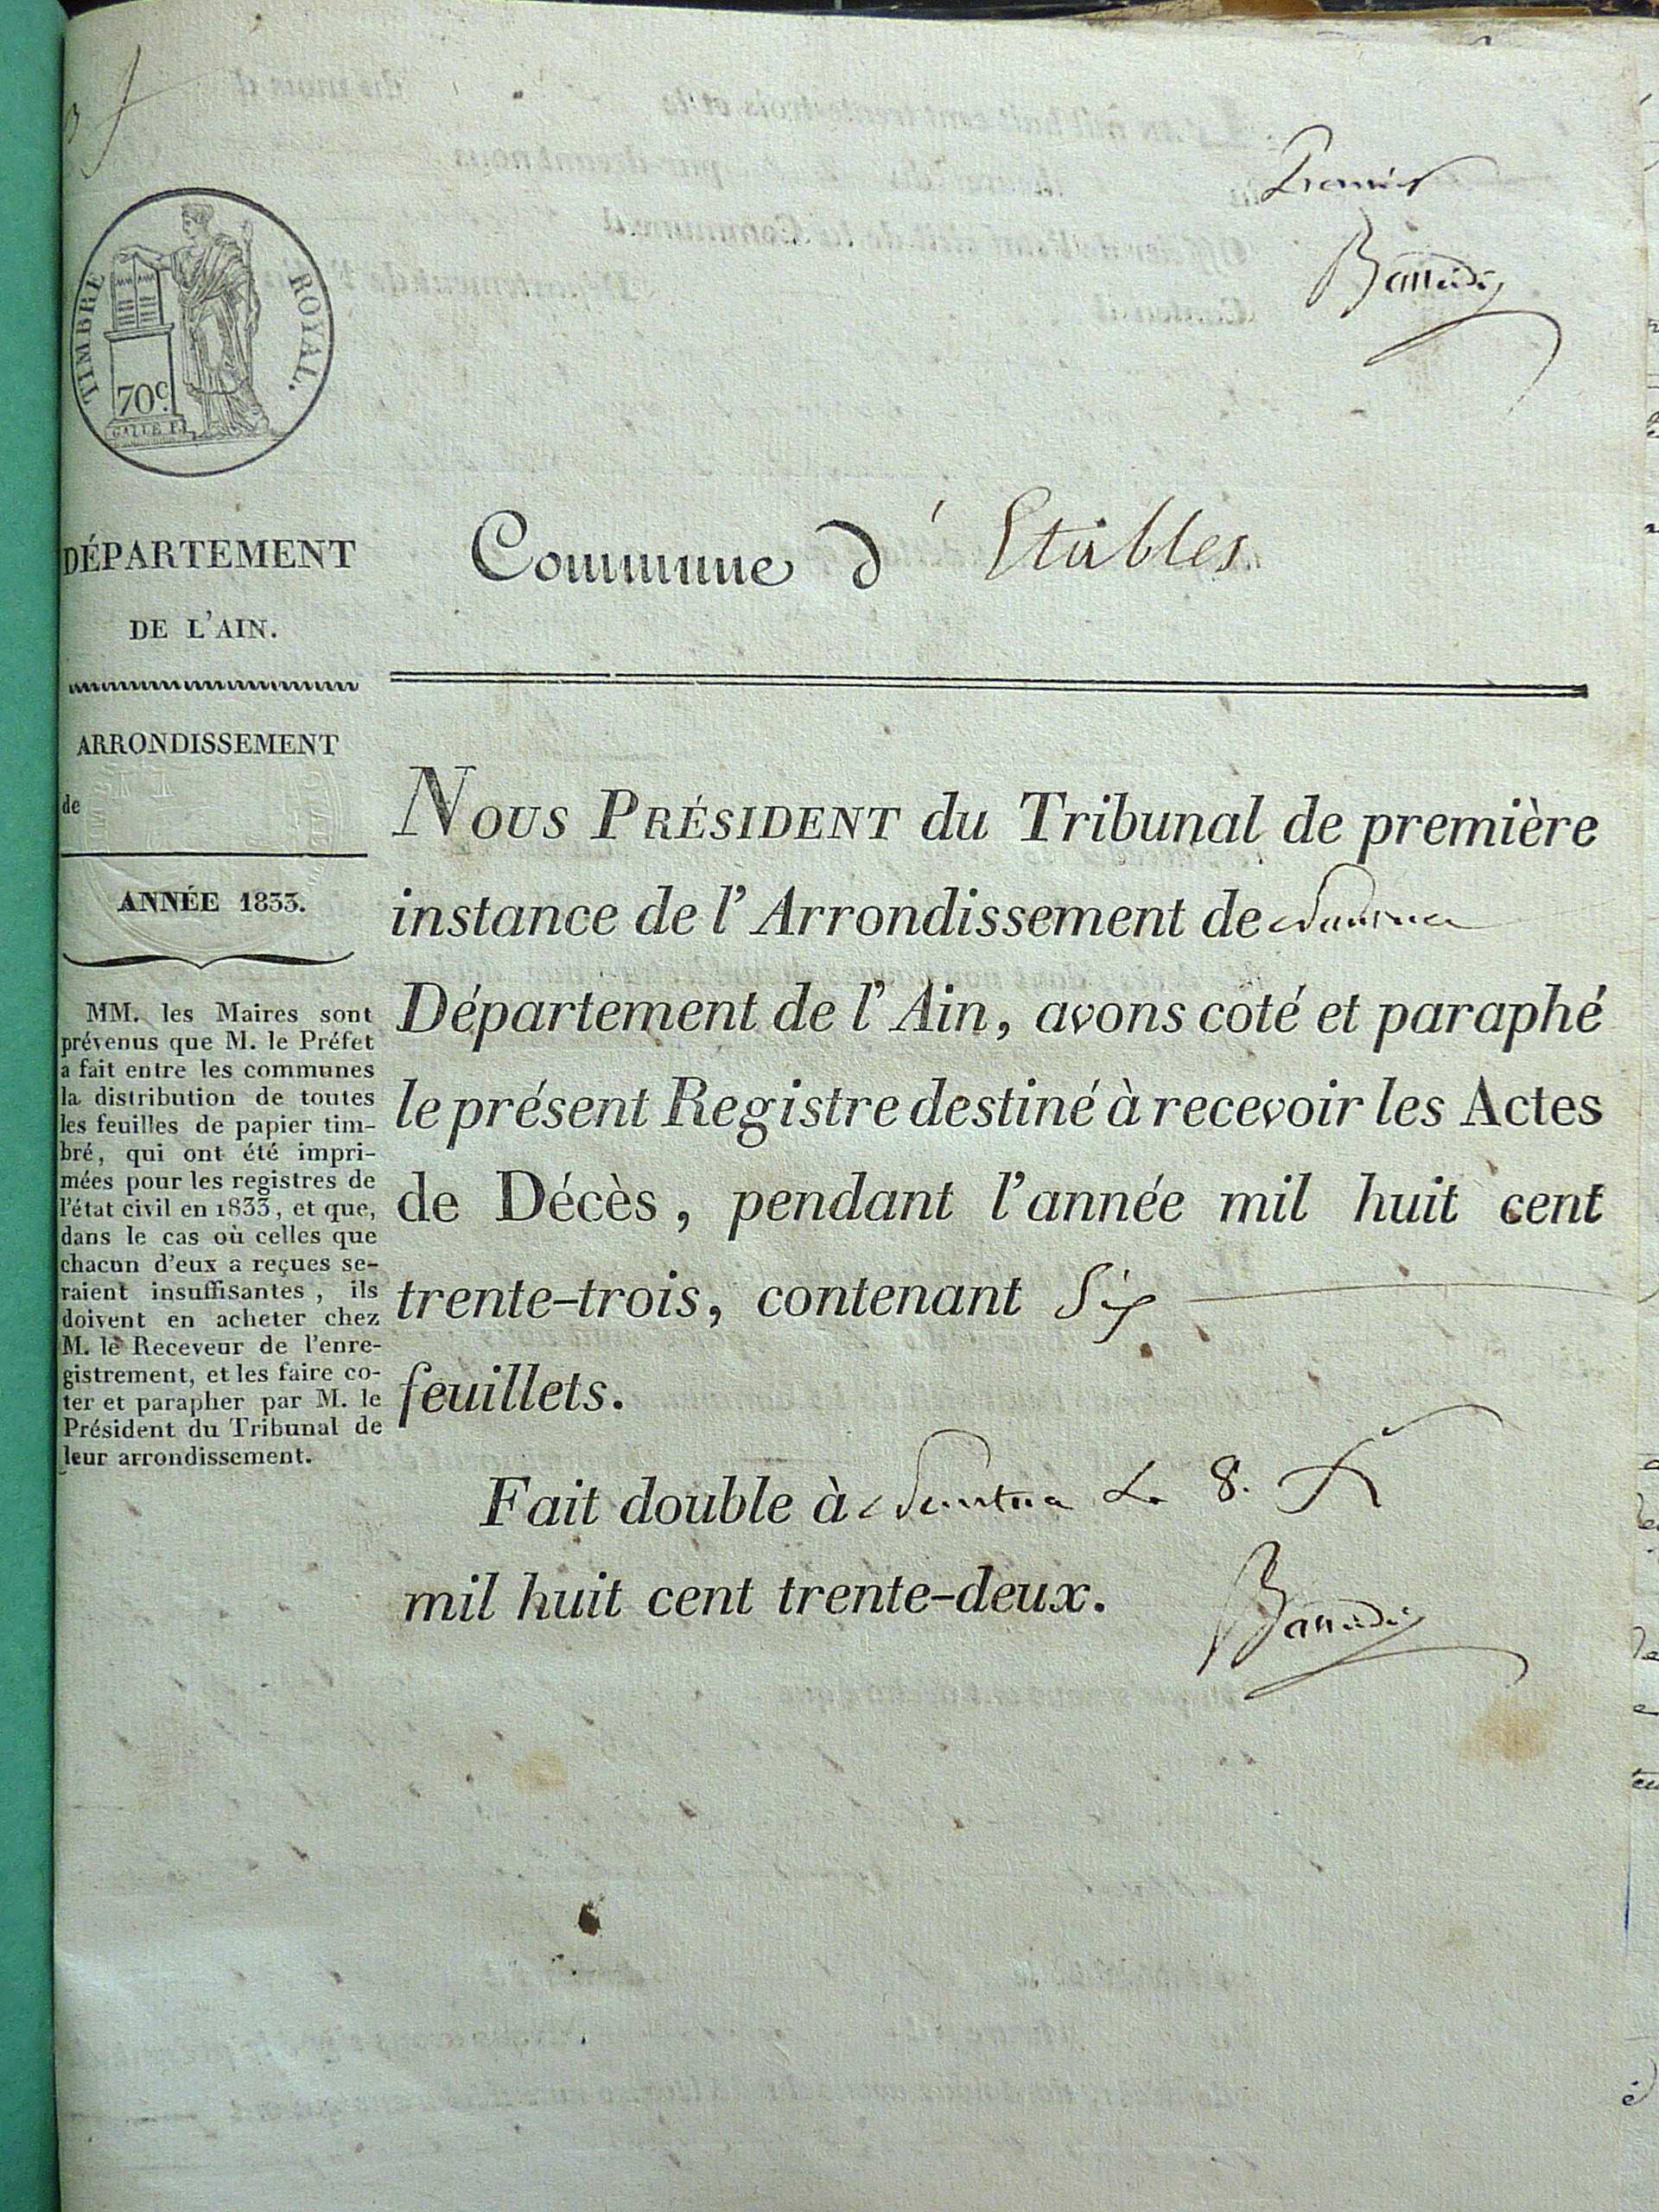 Premier
TIMBRE ROYAL.
70c.
DÉPARTEMENT
DE L'AIN.
Commune d' Etables
ARRONDISSEMENT
de
ANNÉE 1833.
MM. les Maires sont
prévenus que M. le Préfet
a fait entre les communes
la distribution de toutes
les feuilles de papier tim-
bré, qui ont été impri-
mées pour les registres de
l'état civil en 1833, et que,
dans le cas où celles que
chacun d'eux a reçues se-
raient insuffisantes, ils
doivent en acheter chez
M. le Receveur de l'enre-
gistrement, et les faire co-
ter et parapher par M. le
Président du Tribunal de
leur arrondissement.
NOUS PRÉSIDENT du Tribunal de première
instance de l'Arrondissement de Nantua
Département de l'Ain, avons coté et paraphé
le présent Registre destiné à recevoir les Actes
de Décès, pendant l'année mil huit cent
trente-trois, contenant Six
feuillets.
Fait double à Nantua le 8.
mil huit cent trente-deux.